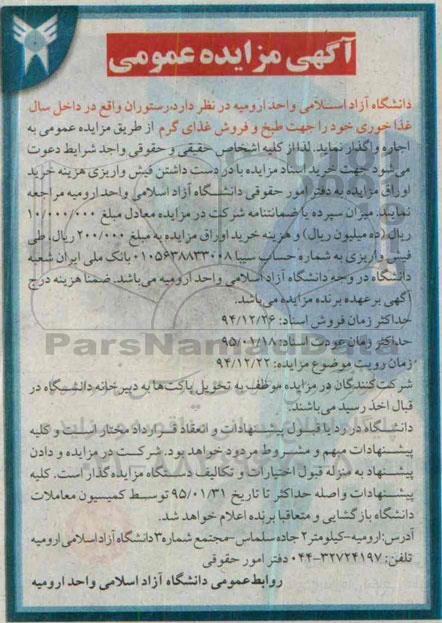 آگهی مزایده عمومی
دانشگاه آزاد اسلامی واحد ارومیه در نظر دارد،رستوران واقع در داخل سال
غذا خوری خود را جهت طبخ و فروش غذای گرم از طریق مزایده عمومی به
اجاره واگذار نماید. لذا از کلیه اشخاص حقیقی و حقوقی واجد شرایط دعوت
می‌شود جهت خرید اسناد مزایده با در دست داشتن فیش واریزی هزینه خرید
اوراق مزایده به دفتر امور حقوقی دانشگاه آزاد اسلامی واحد ارومیه مراجعه
نمایند. میزان سپرده یا ضمانتنامه شرکت در مزایده معادل مبلغ ۱۰/۰۰۰/۰۰۰
ریال(ده میلیون ریال) و هزینه خرید اوراق مزایده به مبلغ ۲۰۰/۰۰۰ ریال، طی
فیش واریزی به شماره حساب سیبا ۰۱۰۵۶۳۸۸۳۳۰۰۸ بانک ملی ایران شعبه
دانشگاه در وجه دانشگاه آزاد اسلامی واحد ارومیه می‌باشد. ضمنا هزینه درج
آگهی بر عهده برنده مزایده می‌باشد.
حداکثر زمان فروش اسناد: ۹۴/۱۲/۲۶
حداکثر زمان عودت اسناد: ۹۵/۰۱/۱۸
زمان رویت موضوع مزایده: ۹۴/۱۲/۲۲
ParsNamadData
شرکت‌کنندگان در مزایده موظف به تحویل پاکت‌ها به دبیرخانه دانشگاه در
قبال اخذ رسید می‌باشند.
دانشگاه در رد یا قبول پیشنهادات و انعقاد قرارداد مختار است و کلیه
پیشنهادات مبهم و مشروط مردود خواهد بود. شرکت در مزایده و دادن
پیشنهاد به منزله قبول اختیارات و تکالیف دستگاه مزایده گذار است. کلیه
پیشنهادات واصله حداکثر تا تاریخ ۹۵/۰۱/۳۱ توسط کمیسیون معاملات
دانشگاه بازگشایی و متعاقبا برنده اعلام خواهد شد.
آدرس:ارومیه-کیلومتر۲ جاده سلماس-مجتمع شماره۳ دانشگاه آزاد اسلامی ارومیه
تلفن: ۳۲۷۲۴۱۹۷-۰۴۴ دفتر امور حقوقی
روابط عمومی دانشگاه آزاد اسلامی واحد ارومیه